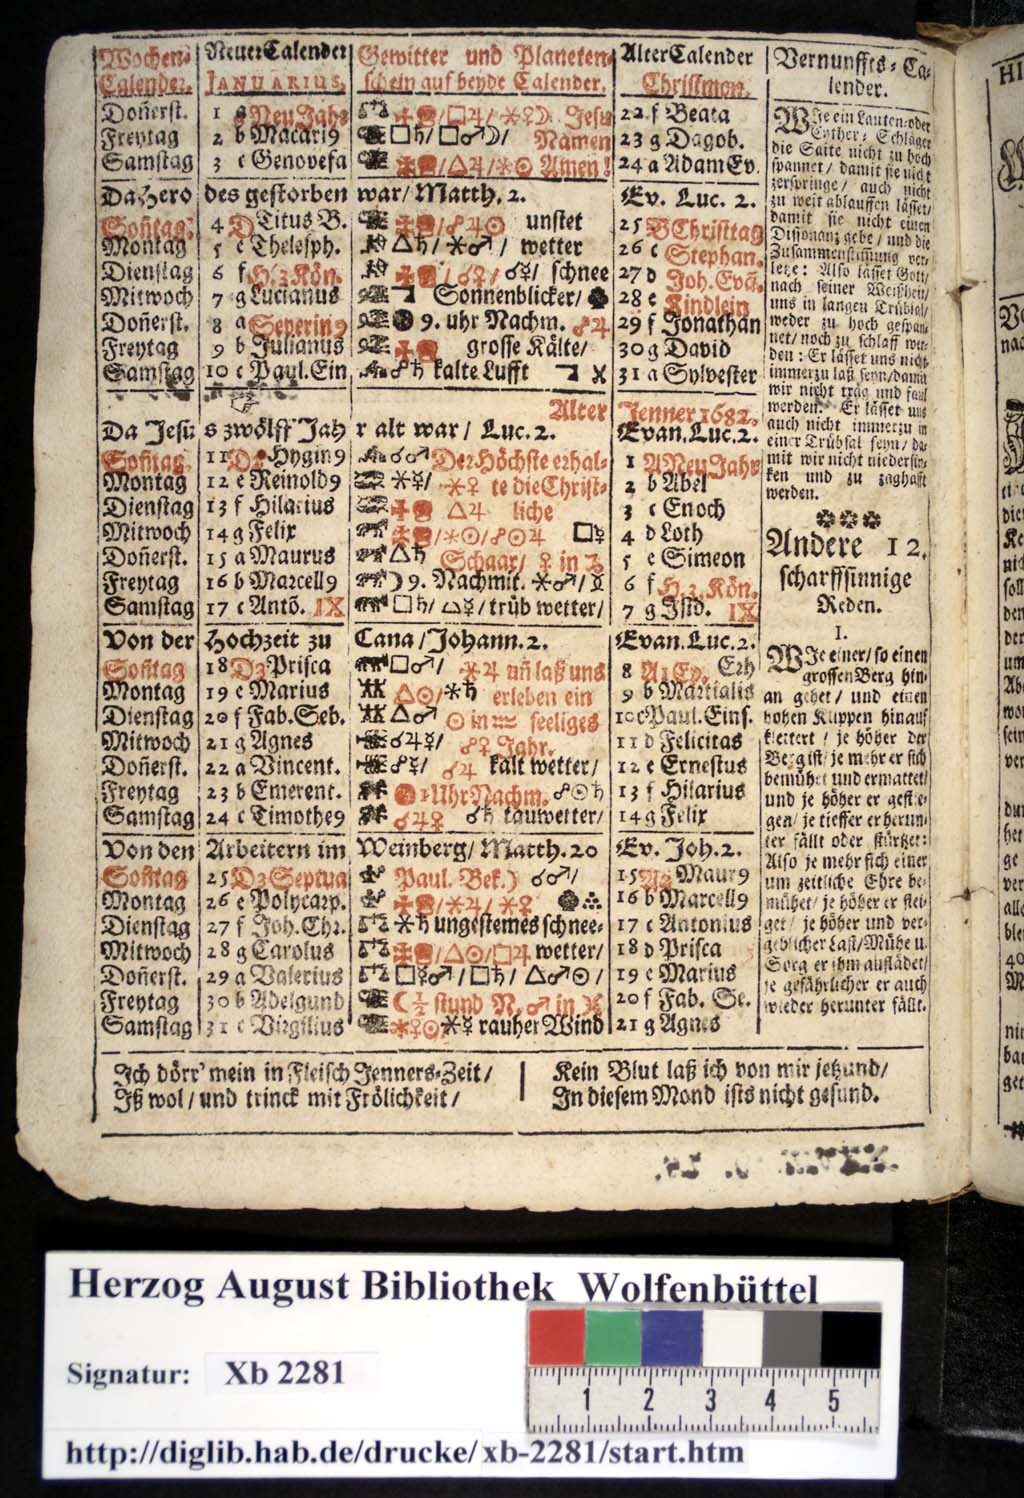 Wochen-Calender. Neuer Calender JANUARIUS. Gewitter und Planeten-schein auf beyde Calender. Alter Calender Christmon.
Doñerst. 1 a Neu Jahr ☐♃/ ⚹♀☽ Jesu 22 f Beata
Freytag 2 b Macari9 ☐♄/ ☐♂☽/ Namen 23 g Dagob.
Samstag 3 c Genovefa △♃/ ⚹☉ Amen! 24 a Adam Ev.
Da Hero des gestorben war/ Matth. 2. Ev. Luc. 2.
Soñtag 4 D Titus B. ☍♃☉ unstet 25 B Christtag
Montag 5 e Thelesph. △♄/ ⚹♂/ wetter 26 c Stephan.
Dienstag 6 f H. 3. Kön. ☌♀/ ☌☿/ schnee 27 d Joh. Evã.
Mitwoch 7 g Lucianus Sonnenblicker/ 28 e Kindlein
Doñerst. 8 a Severin9 9. uhr Nachm. ☍♃ 29 f Jonathan
Freytag 9 b Julianus grosse Kälte/ 30 g David
Samstag 10 c Paul. Ein ☍♄ kalte Lufft 31 a Sylvester
Alter Jenner 1682.
Da Jesus zwölff Jahr alt war/ Luc. 2. Evan. Luc. 2.
Soñtag 11 Hygin9 ☌♂ Der Höchste erhal- 1 A Neu Jahr
Montag 12 e Reinold9 ⚹☿/ ⚹♀ te die Christ- 2 b Abel
Dienstag 13 f Hilarius △♃ liche 3 c Enoch
Mitwoch 14 g Felix ⚹☉/ ☍☉♃ ☐☿ 4 d Loth
Doñerst. 15 a Maurus △♄ Schaar/ ♀ in 5 e Simeon
Freytag 16 b Marcell9 9. Nachmit. ⚹♂/ 6 f H. 3. Kön.
Samstag 17 c Antõ. IX ☐♄/ trüb wetter/ 7 g Isid. IX
Von der Hochzeit zu Cana/ Johann. 2. Evan. Luc. 2.
Soñtag 18 D2 Prisca ☐♂/ ⚹♃ uñ laß uns 8 A1 Ep. Erh
Montag 19 e Marius △☉/ ⚹♄ erleben ein 9 b Martialis
Dienstag 20 f Fab. Seb. △♂ ☉ in ♒ seeliges 10 c Paul. Eins.
Mitwoch 21 g Agnes ☌♃☿/ ☍♀ Jahr. 11 d Felicitas
Doñerst. 22 a Vincent. ☍☿/ ☌♃ kalt wetter/ 12 e Ernestus
Freytag 23 b Emerent. Uhr Nachm. ☍☉♄ 13 f Hilarius
Samstag 24 c Timothe9 ☌♃♀ ☌♄ tauwetter/ 14 g Felix
Von den Arbeitern im Weinberg/ Matth. 20 Ev. Joh. 2.
Soñtag 25 Septua Paul. Bek. ☌♂/ 15 Maur9
Montag 26 e Polycarp. ⚹♃/ ⚹♀ 16 b Marcell9
Dienstag 27 f Joh. Chr. ⚹♄ ungestemes schnee- 17 c Antonius
Mitwoch 28 g Carolus △☉/ ☐♃ wetter/ 18 d Prisca
Doñerst. 29 a Valerius ☐☿♂/ ☐♄/ △♂☉/ 19 e Marius
Freytag 30 b Adelgund stund N. ♂ in ♓ 20 f Fab. Se.
Samstag 31 c Virgilius ⚹♀☉/ ⚹☿ rauher Wind 21 g Agnes
Ich dörr' mein in Fleisch Jenners-Zeit/
Iß wol/ und trinck mit Frölichkeit/
Kein Blut laß ich von mir jetzund/
In diesem Mond ists nicht gesund.
Vernunffts-Ca-
lender.
WIe ein Lauten- oder
Cyther-Schläger
die Saite nicht zu hoch
spannet/ damit sie nicht
zerspringe/ auch nicht
zu weit ablauffen lässet/
damit sie nicht einen
Dissonanz gebe/ und die
Zusammenstimmung ver-
letze: Also lässet Gott/
nach seiner Weißheit/
uns in langen Trübsal/
weder zu hoch gespan-
net/ noch zu schlaff wer-
den: Er lässet uns nicht
immerzu laß seyn/ damit
wir nicht träg und faul
werden. Er lässet uns
auch nicht immerzu in
einer Trübsal seyn/ da-
mit wir nicht niedersin-
ken und zu zaghafft
werden.
Andere 12.
scharffsinnige
Reden.
I.
WIe einer/ so einen
grossen Berg hin-
an gehet/ und einen
hohen Kuppen hinauf
klettert/ je höher der
Berg ist/ je mehr er sich
bemühet und ermattet/
und je höher er gestie-
gen/ je tieffer er herun-
ter fällt oder stürtzet:
Also je mehr sich einer
um zeitliche Ehre be-
mühet/ je höher er stei-
get/ je höher und ver-
geblicher Last/ Mühe u.
Sorg er ihm aufladet/
je gefährlicher er auch
wieder herunter fällt.
Herzog August Bibliothek Wolfenbüttel
Signatur: Xb 2281
1 2 3 4 5
http://diglib.hab.de/drucke/xb-2281/start.htm